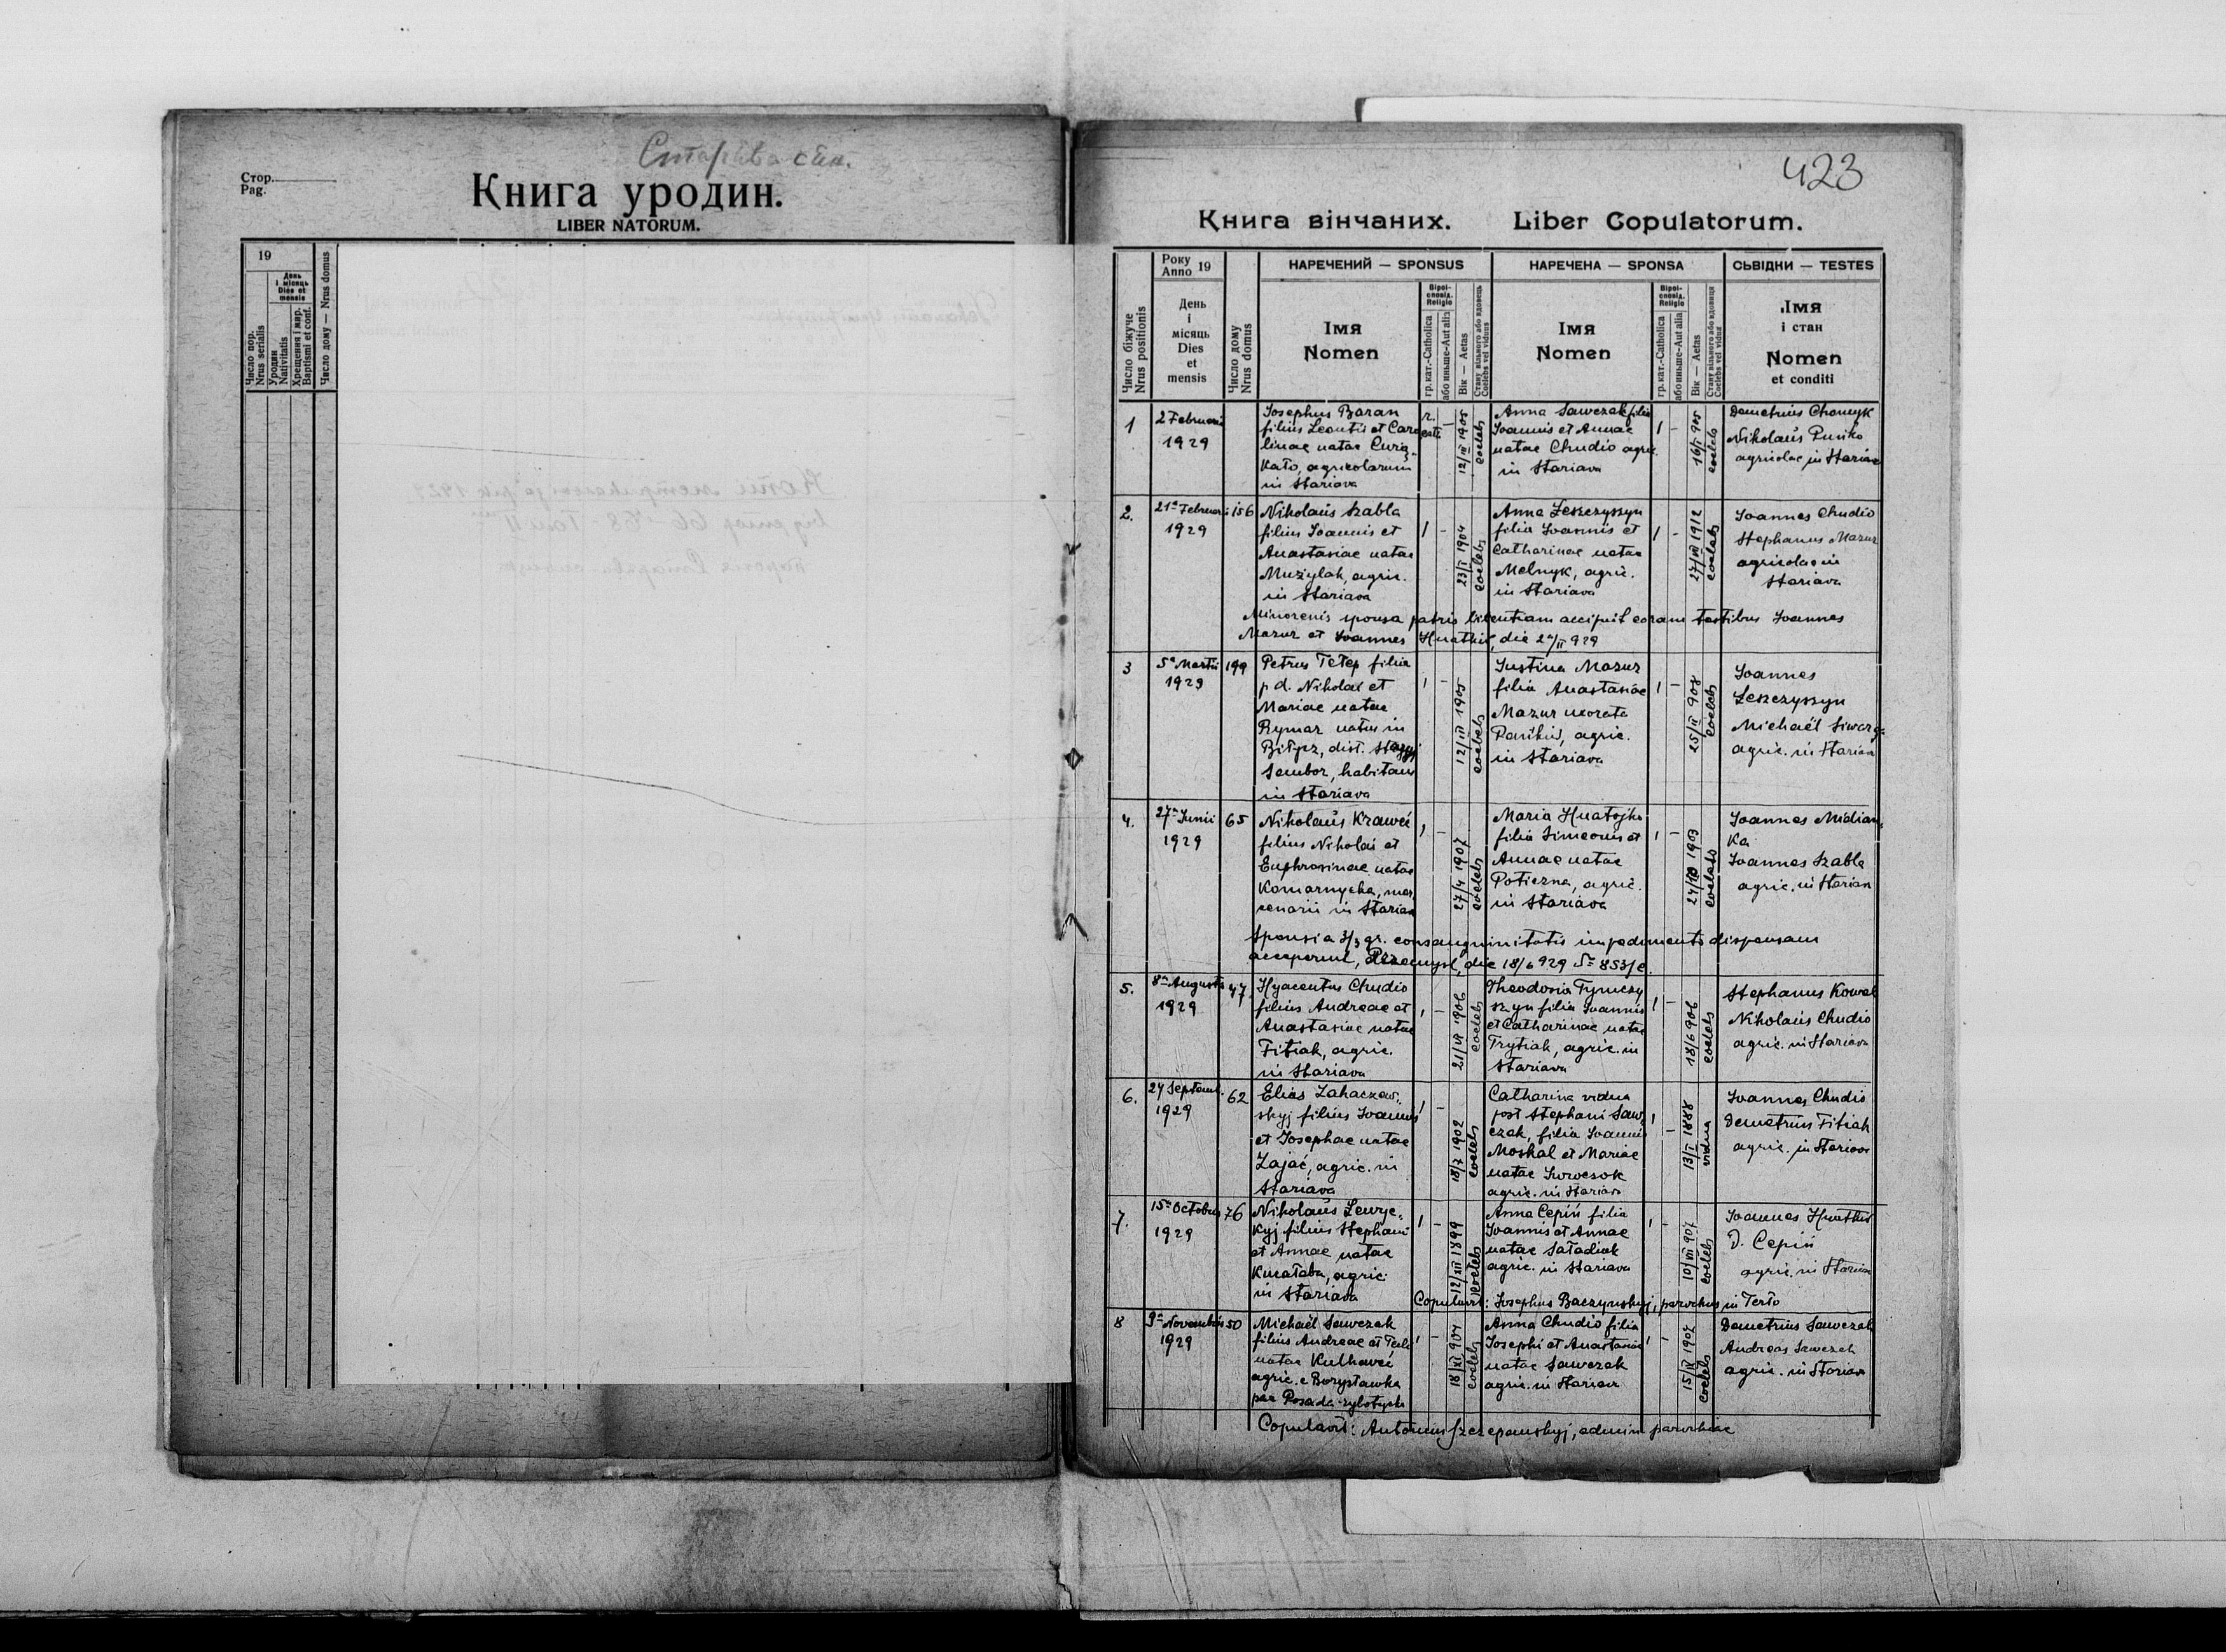 Стар ва сян.
Стор.
Pag.
Книга уродин.
LIBER NATORUM.
19
День
і місяць
Dies et
mensis
Число пор.
Nrus serialis
Уродин
Nativitatis
Хрещення і мир.
Baptismi et conf.
Число дому — Nrus domus
423
Книга вінчаних. Liber Copulatorum.
Число біжуче
Nrus positionis
Року
Anno 19
День
і
місяць
Dies
et
mensis
Число дому
Nrus domus
НАРЕЧЕНИЙ — SPONSUS
Імя
Nomen
Віроі-
сповід.
Religio
гр. кат.-Catholica
або иньше-Aut alia
Вік — Aetas
Стану вільного або вдовець
Coelebs vel viduus
НАРЕЧЕНА — SPONSA
Імя
Nomen
Віроі-
сповід.
Religio
гр. кат.-Catholica
або иньше-Aut alia
Вік — Aetas
Стану вільного або вдовиця
Coelebs vel vidua
СЬВІДКИ — TESTES
Імя
і стан
Nomen
et conditi
1
2 Februarii
1929
Josephus Baran
filius Leontii et Caro
linae natae
kato, agricolarum
in Stariava
12/III 1905
coelebs
Anna Sawczak filia
Joannis et Annae
natae Chudio agric.
in Stariava
905
coelebs
Demetrius Chomyk
Nikolaus
agricolae in Stariava
2.
21a Februarii
1929
156
Nikolaus Szabla
filius Joannis et
Anastasiae natae
Mużylak, agric.
in Stariava
23/I 1904
coelebs
Anna Leszczyszyn
filia Joannis et
Catharinae natae
Melnyk, agric.
in Stariava
27/VII 1912
coelebs
Joannes Chudio
Stephanus Mazur
agricolae in
Stariava
Minorenis sponsa patris licentiam accipit coram testibus Joannes
Mazur et Joannes Hnatkiw, die 2/II 929
3
5a Martii
1929
199
Petrus Tełep filius
p d. Nikolai et
Mariae natae
Rymar natus in
dist. Staryj
Sambor, habitans
in Stariava
12/III 1905
coelebs
Justina Mazur
filia Anastasiae
Mazur uxorata
Pańkiw, agric.
in Stariava
25/II 908
coelebs
Joannes
Leszczyszyn
Michaël
agric. in Stariava
4.
27a Junii
1929
65
Nikolaus Kraweć
filius Nikolai et
Euphrosinae natae
Komarnycka, mer
cenarii in Stariava
27/4 1907
coelebs
Maria Hnatojko
filia Simeonis et
Annae natae
Poticzna, agric.
in Stariava
24/10 1903
coelebs
Joannes Midian-
ka
Joannes Szabla
agric. in Stariav
Sponsi a 3/3 gr. consanguinitatis impedimento dispensam
acceperunt, Przemyśl, die 18/6 929 № 853/e.
5.
8a Augusti
1929
47.
Hyacentus Chudio
filius Andreae et
Anastasiae natae
Fitiak, agric.
in Stariava
21/VI 1906
coelebs
Theodosia Tymczy
szyn filia Joannis
et Catharinae natae
Trytiak, agric. in
Stariava
18/6 906
coelebs
Stephanus Kowal
Nikolaus Chudio
agric. in Stariava
6.
27 Septemb.
1929
62
Elias Zahaczew-
skyj filius Joannis
et Josephae natae
Zająć, agric. in
Stariava
18/7 902
coelebs
Catharina vidua
post Stephani Saw
czak, filia Joannis
Moskal et Mariae
natae
agric. in Stariava
13/I 1888
vidua
Joannes Chudio
Demetrius Fitiak
agric. in Stariava
7.
15a Octobris
1929
76
Nikolaus Lewyc-
kyj filius Stephani
et Annae natae
agric.
in Stariava
12/XII 1899
coelebs
Anna Cepiń filia
Joannis et Annae
natae Saładiak
agric. in Stariava
10/VII 907
coelebs
Joannes Hnatkiw
D. Cepiń
agric. in Stariava
Copulavit: Josephus Baczynskyj, parochus in Terło
8
9a Novembris
1929
50
Michaël Sawczak
filius Andreae et Teclae
natae Kulhaweć
agric. e Borysławka
par Posada-rybotycka
18/XI 904
coelebs
Anna Chudio filia
Josephi et Anastasiae
natae Sawczak
agric. in Stariava
15/IX 1907
coelebs
Demetrius Sawczak
Andreas Sawczak
agric. in Stariava
Copulavit: Antonius Szczepanskyj, admin parochiae